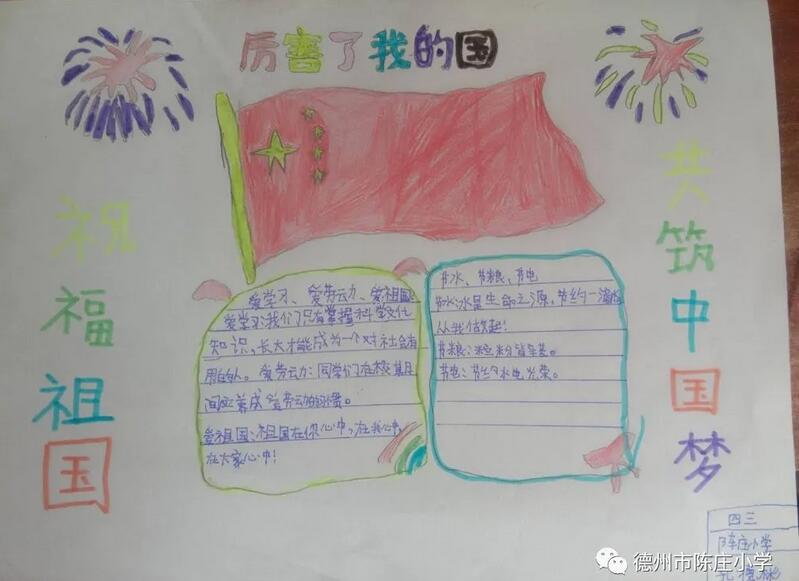 厉害了我的国
祝福祖国
共筑中国梦
爱学习、爱劳动、爱祖国
爱学习:我们只有掌握科学文化
知识,长大才能成为一个对社会有
用的人。爱劳动:同学们在校其
间应养成爱劳动的习惯。
爱祖国:祖国在你心中,在我心中,
在大家心中!
节水、节粮、节电
节水:水是生命之源,节约一滴
从我做起!
节粮:粒粒皆辛苦。
节电:节约水电光荣。
四三
陈庄小学
德州市陈庄小学